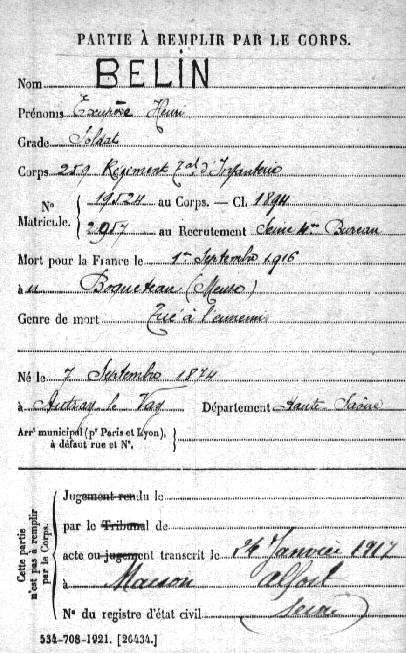 PARTIE À REMPLIR PAR LE CORPS.
Nom BELIN
Prénoms Exupère Henri
Grade Soldat
Corps 259 Régiment d'Infanterie
Nº Matricule. 19524 au Corps. — Cl. 1894
2957 au Recrutement Seine 4me Bureau
Mort pour la France le 1er Septembre 1916
à Boqueteau (Meuse)
Genre de mort Tué à l'ennemi
Né le 7 Septembre 1874
à Autrey le Vay Département Haute Saône
Arrt municipal (pr Paris et Lyon),
à défaut rue et Nº.
Cette partie
n'est pas à remplir
par le Corps.
Jugement rendu le
par le Tribunal de
acte ou jugement transcrit le 24 Janvier 1917
à Maison Alfort
Nº du registre d'état civil (Seine)
534-708-1921. [26434.]